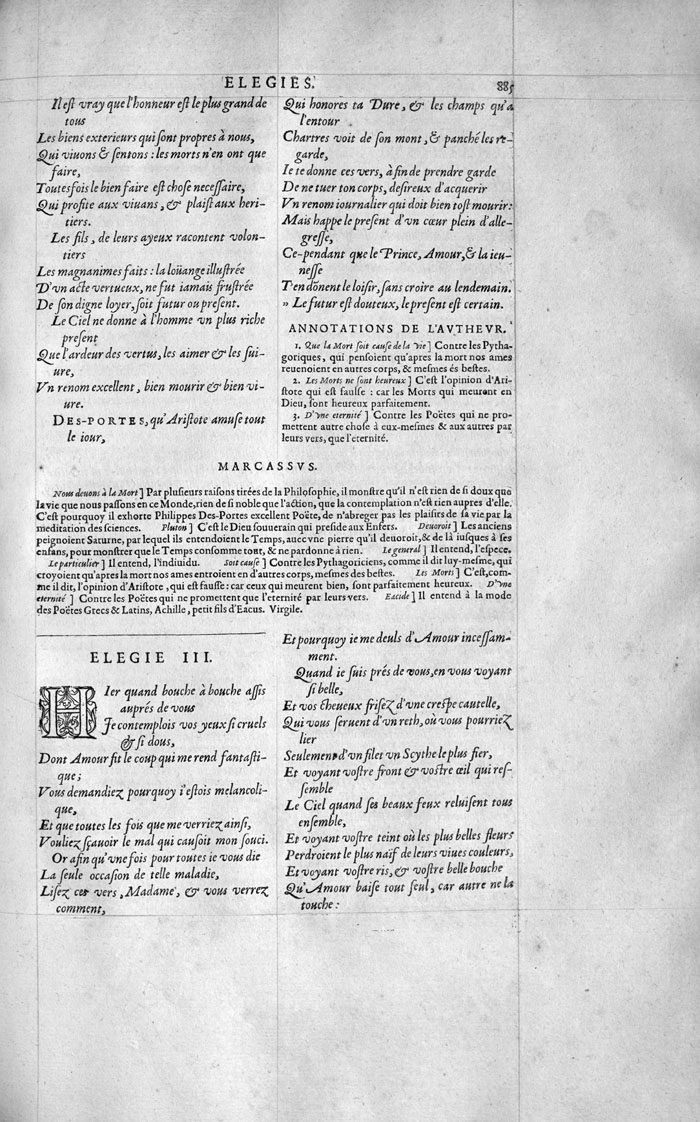 ELEGIES. 885
Il est vray que l'honneur est le plus grand de
tous
Les biens exterieurs qui sont propres à nous,
Qui viuons & sentons : les morts n'en ont que
faire,
Toutesfois le bien faire est chose necessaire,
Qui profite aux viuans, & plaist aux heri-
tiers.
Les fils, de leurs ayeux racontent volon-
tiers
Les magnanimes faits : la loüange illustrée
D'vn acte vertueux, ne fut iamais frustrée
De son digne loyer, soit futur ou present.
Le Ciel ne donne à l'homme vn plus riche
present
Que l'ardeur des vertus, les aimer & les sui-
ure,
Vn renom excellent, bien mourir & bien vi-
ure.
DES-PORTES, qu'Aristote amuse tout
le iour,
Qui honores ta Dure, & les champs qu'a
l'entour
Chartres voit de son mont, & panché les re-
garde,
Ie te donne ces vers, à fin de prendre garde
De ne tuer ton corps, desireux d'acquerir
Vn renom iournalier qui doit bien tost mourir:
Mais happe le present d'vn cœur plein d'alle-
gresse,
Ce-pendant que le Prince, Amour, & la ieu-
nesse
T'en donent le loisir, sans croire au lendemain.
» Le futur est douteux, le present est certain.
ANNOTATIONS DE L'AVTHEVR.
1. Que la Mort soit cause de la vie] Contre les Pytha-
goriques, qui pensoient qu'apres la mort nos ames
reuenoient en autres corps, & mesmes és bestes.
2. Les Morts ne sont heureux] C'est l'opinion d'Ari-
stote qui est fausse : car les Morts qui meurent en
Dieu, sont heureux parfaitement.
3. D'vne eternité] Contre les Poëtes qui ne pro-
mettent autre chose à eux-mesmes & aux autres par
leurs vers, que l'eternité.
MARCASSVS.
Nous deuons à la Mort] Par plusieurs raisons tirées de la Philosophie, il monstre qu'il n'est rien de si doux que
la vie que nous passons en ce Monde, rien de si noble que l'action, que la contemplation n'est rien aupres d'elle.
C'est pourquoy il exhorte Philippes Des-Portes excellent Poëte, de n'abreger pas les plaisirs de sa vie par la
meditation des sciences. Pluton] C'est le Dieu souuerain qui preside aux Enfers. Deuoroit] Les anciens
peignoient Saturne, par lequel ils entendoient le Temps, auec vne pierre qu'il deuoroit, & de là iusques à ses
enfans, pour monstrer que le Temps consomme tout, & ne pardonne à rien. Le general] Il entend, l'espece.
Le particulier] Il entend, l'indiuidu. Soit cause] Contre les Pythagoriciens, comme il dit luy-mesme, qui
croyoient qu'apres la mort nos ames entroient en d'autres corps, mesmes des bestes. Les Morts] C'est, com-
me il dit, l'opinion d'Aristote, qui est fausse: car ceux qui meurent bien, sont parfaitement heureux. D'vne
eternité] Contre les Poëtes qui ne promettent que l'eternité par leurs vers. Eacide] Il entend à la mode
des Poëtes Grecs & Latins, Achille, petit fils d'Eacus. Virgile.
ELEGIE III.
HIer quand bouche à bouche assis
auprés de vous
Je contemplois vos yeux si cruels
& si dous,
Dont Amour fit le coup qui me rend fantasti-
que;
Vous demandiez pourquoy i'estois melancoli-
que,
Et que toutes les fois que me verriez ainsi,
Vouliez sçauoir le mal qui causoit mon souci.
Or afin qu'vne fois pour toutes ie vous die
La seule occasion de telle maladie,
Lisez ces vers, Madame, & vous verrez
comment,
Et pourquoy ie me deuls d'Amour incessam-
ment.
Quand ie suis prés de vous, en vous voyant
si belle,
Et vos cheueux frisez d'vne crespe cautelle,
Qui vous seruent d'vn reth, où vous pourriez
lier
Seulement d'vn filet vn Scythe le plus fier,
Et voyant vostre front & vostre œil qui res-
semble
Le Ciel quand ses beaux feux reluisent tous
ensemble,
Et voyant vostre teint où les plus belles fleurs
Perdroient le plus naïf de leurs viues couleurs,
Et voyant vostre ris, & vostre belle bouche
Qu'Amour baise tout seul, car autre ne la
touche :